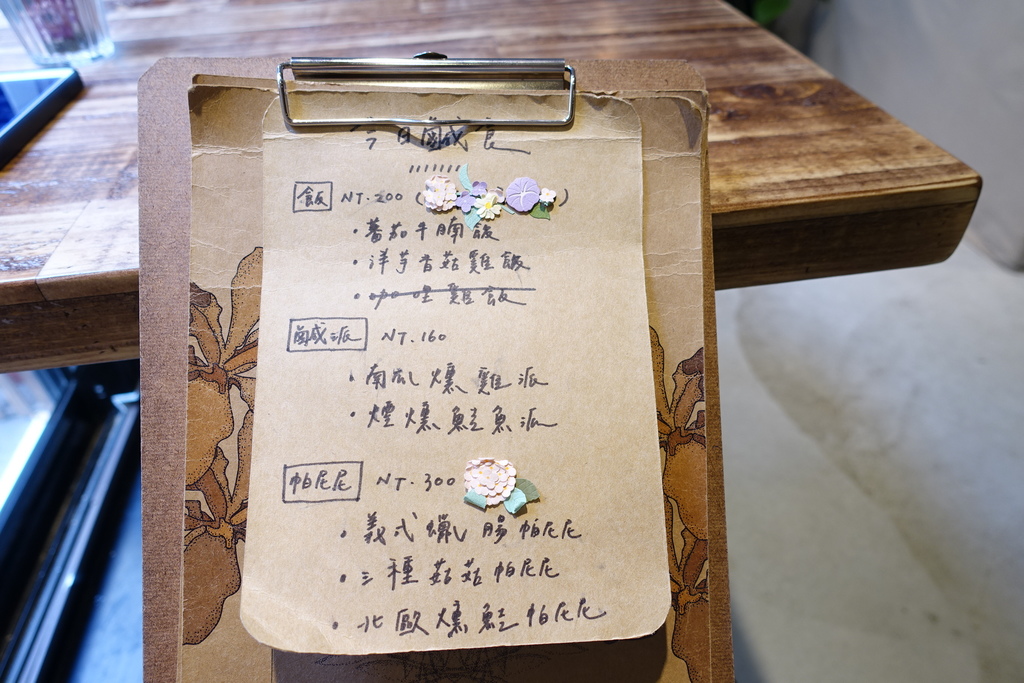 今日鹹食
飯 NT.200 ( )
・蕃茄牛腩飯
・洋芋香菇雞飯
・咖哩雞飯
鹹派 NT.160
・南瓜燻雞派
・煙燻鮭魚派
帕尼尼 NT.300
・義式臘腸帕尼尼
・三種菇菇帕尼尼
・北歐燻鮭帕尼尼